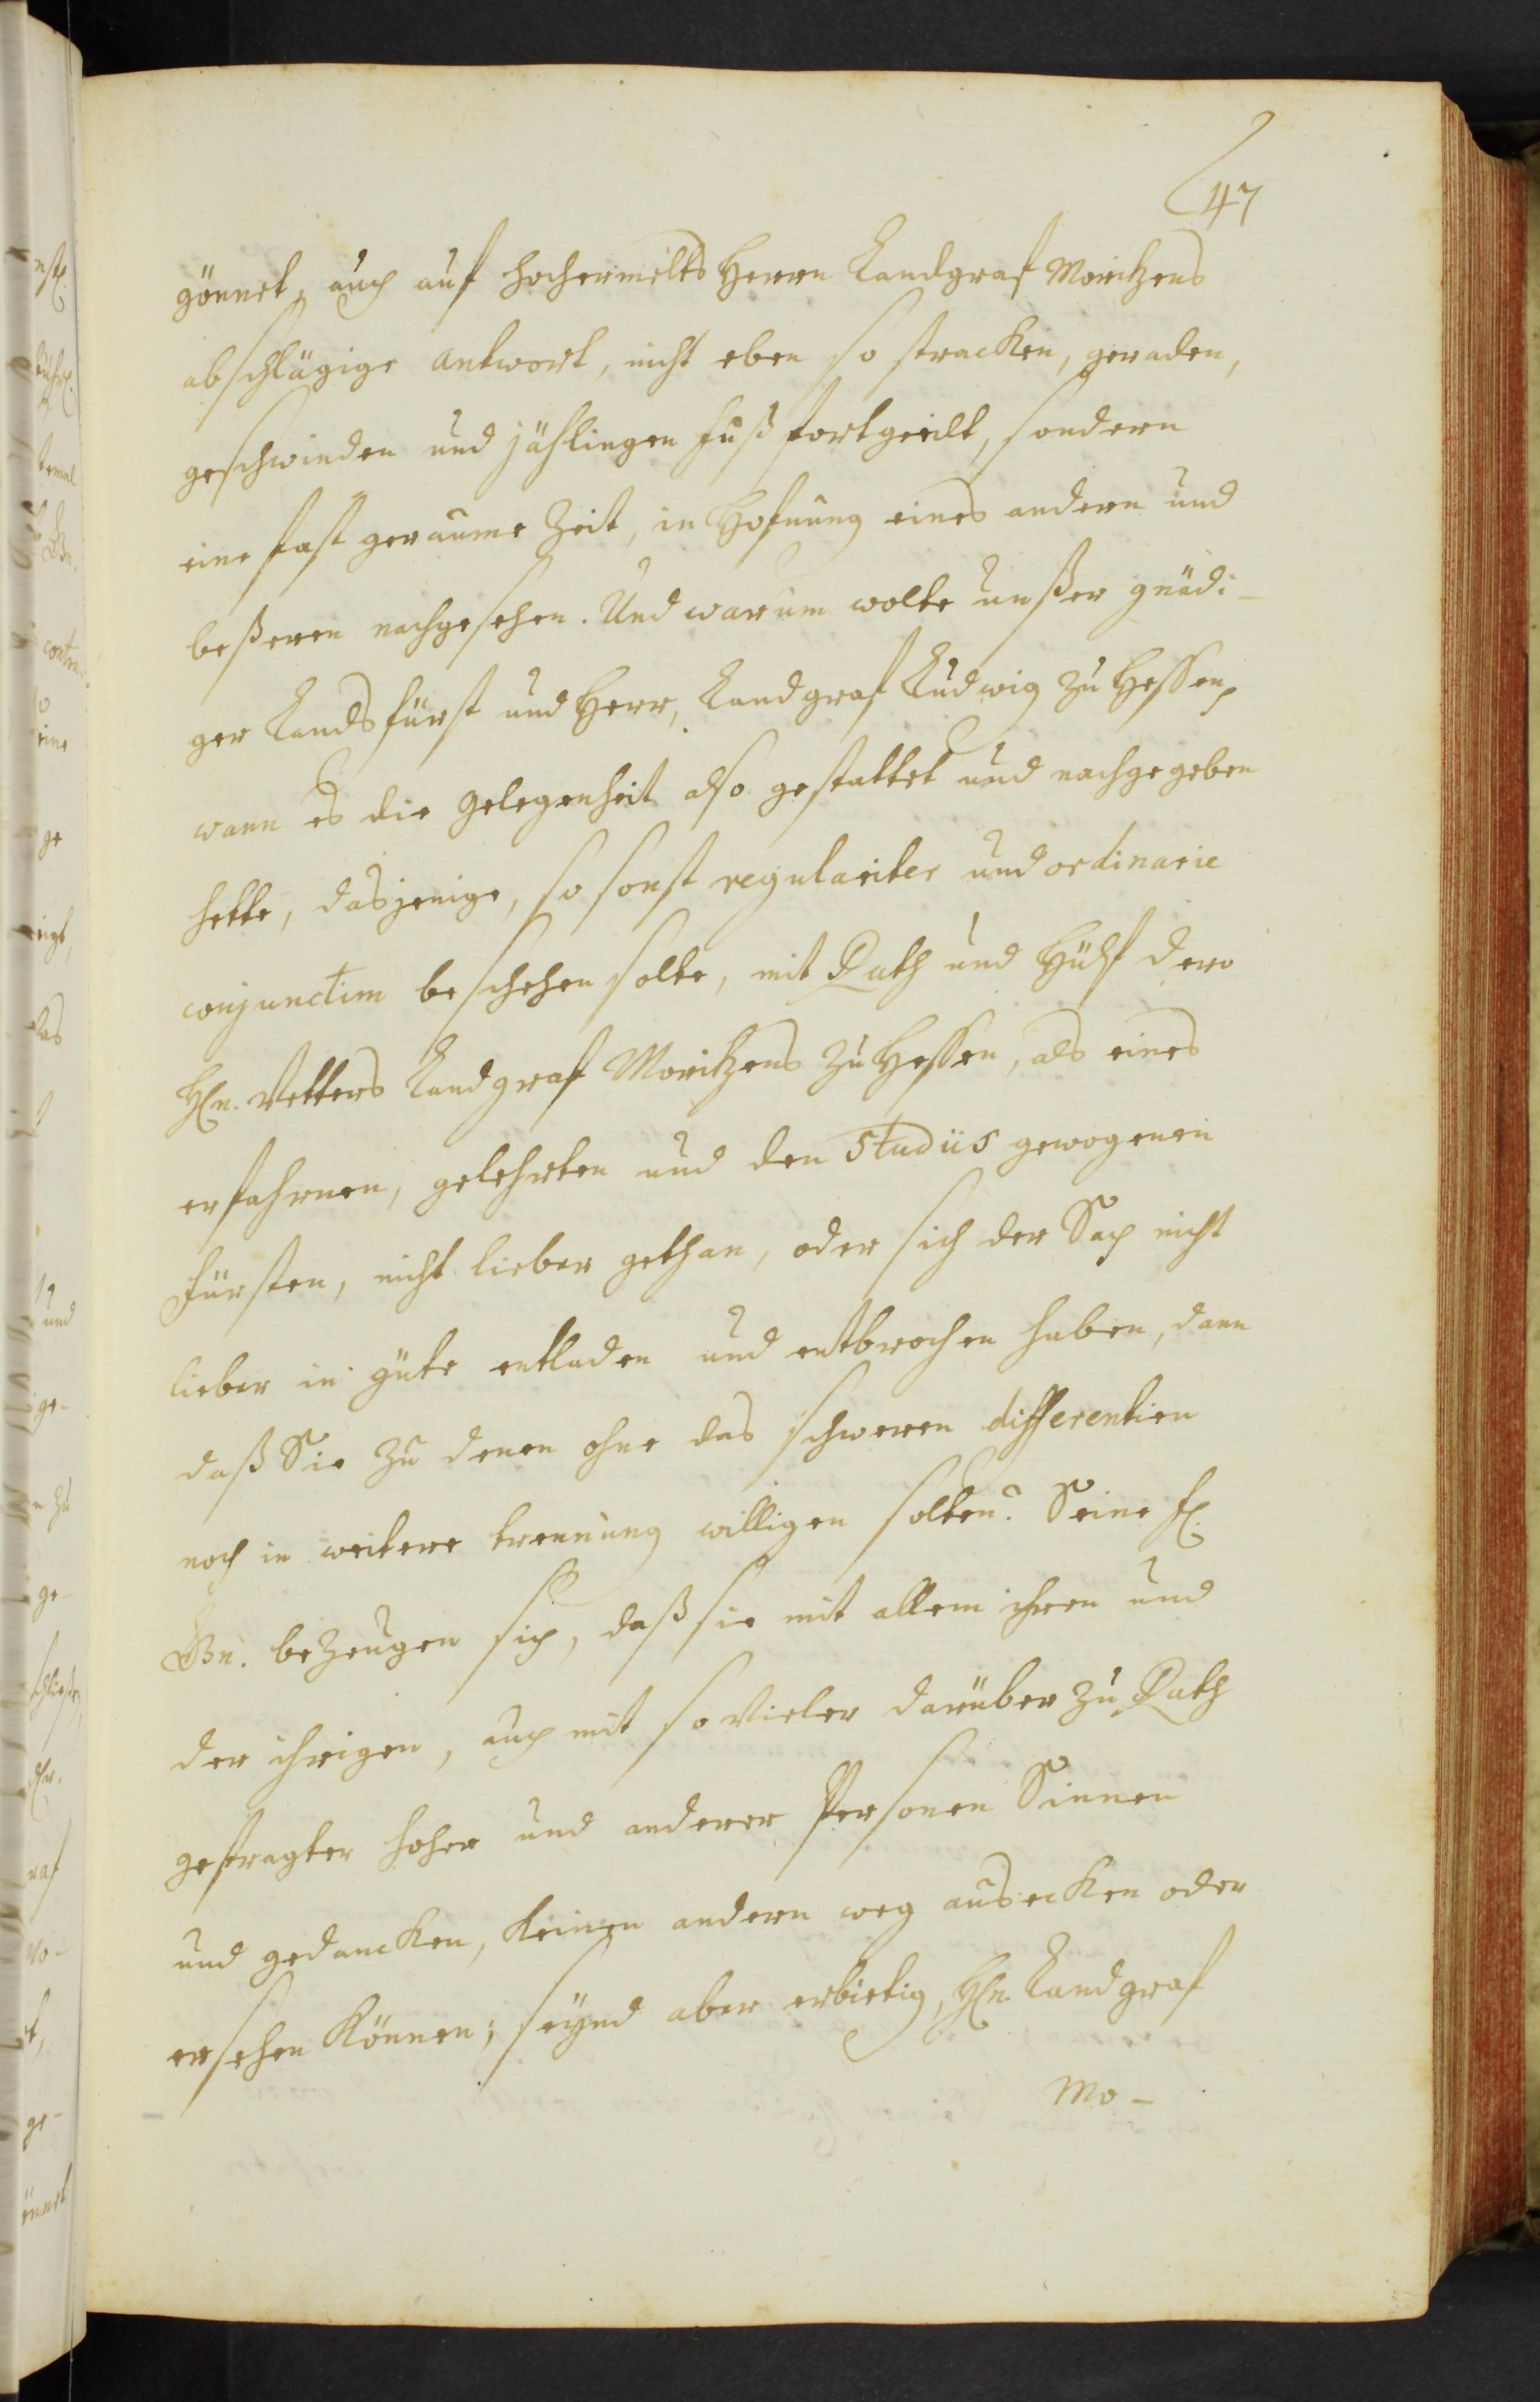 47
gönnet, auch auf hochermelts Herrn Landgraf Moritzens
abschlägige antwort, nicht eben so stracken, geraden,
geschwinden und jählingen fuß fortgeeilt, sondern
eine fast geraume Zeit, in Hofnung eines andern und
beßeren nachgesehen. Und warum wolte unßer gnädi-
ger Landsfürst und Herr, Landgraf Ludwig zu Hessen,
wann es die gelegenheit also gestattet und nachgegeben
hette, dasjenige, so sonst regulariter und ordinarie
conjunctim beschehen solte, mit Rath und Hülf dero
Hn. Vetters Landgraf Moritzens zu Hessen, als eines
erfahrnen, gelehrten und den studiis gewogenen
Fürsten, nicht lieber gethan, oder sich der Sach nicht
lieber in güte entladen und entbrochen haben, dann
daß Sie zu denen ohne das schweren differentien
noch in weitere trennung willigen solten? Seine f.
Gn. bezeugen sich, daß sie mit allem ihren und
der ihrigen, auch mit so vieler darüber zu Rath
gefragter hoher und anderer Personen Sinnen
und gedancken, keinen andern weg ausecken oder
ersehen können; seynd aber erbietig, Hn. Landgraf
Mo-